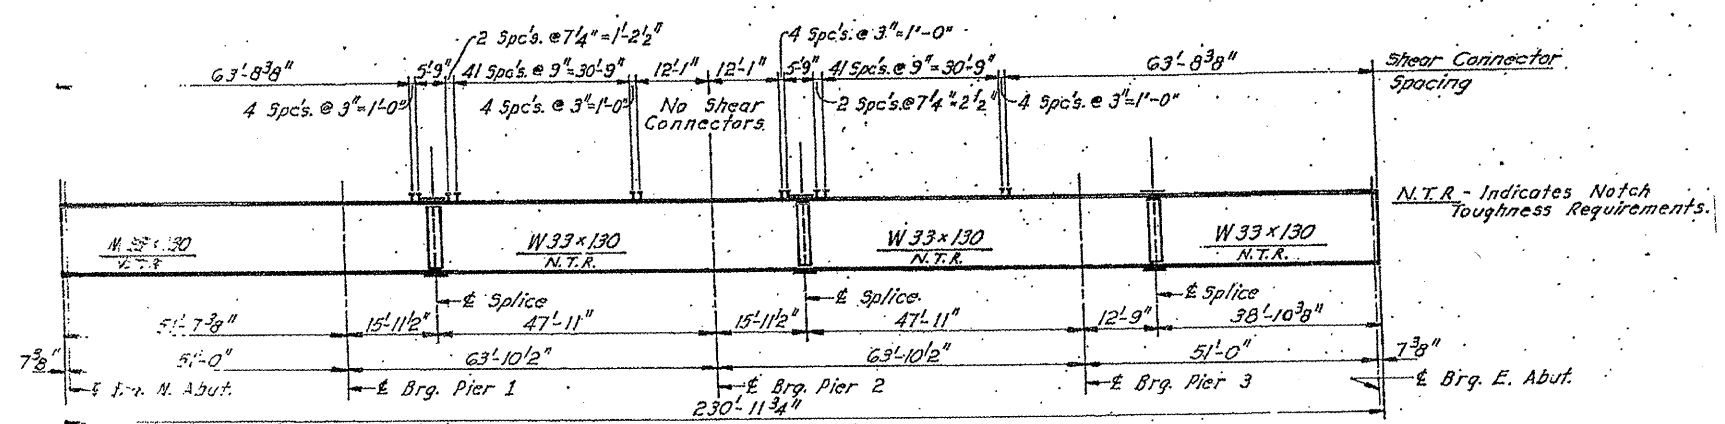 2 Spc's. @ 7¼" = 1'-2½"
4 Spc's. @ 3" = 1'-0"
63'-8⅜"
5'-9"
41 Spc's. @ 9" = 30'-9"
12'-1"
12'-1"
5'-9"
41 Spc's. @ 9" = 30'-9"
63'-8⅜"
Shear Connector
Spacing
4 Spc's. @ 3" = 1'-0"
4 Spc's. @ 3" = 1'-0"
No Shear
Connectors
2 Spc's. @ 7¼" = 2½"
4 Spc's. @ 3" = 1'-0"
N.T.R. - Indicates Notch
Toughness Requirements.
W 33 x 130
N.T.R.
W 33 x 130
N.T.R.
W 33 x 130
N.T.R.
x 130
℄ Splice
℄ Splice
℄ Splice
51'-7⅜"
15'-11½"
47'-11"
15'-11½"
47'-11"
12'-9"
38'-10⅜"
7⅜"
51'-0"
63'-10½"
63'-10½"
51'-0"
7⅜"
℄ Brg. N. Abut.
℄ Brg. Pier 1
℄ Brg. Pier 2
℄ Brg. Pier 3
℄ Brg. E. Abut.
230'-11¾"